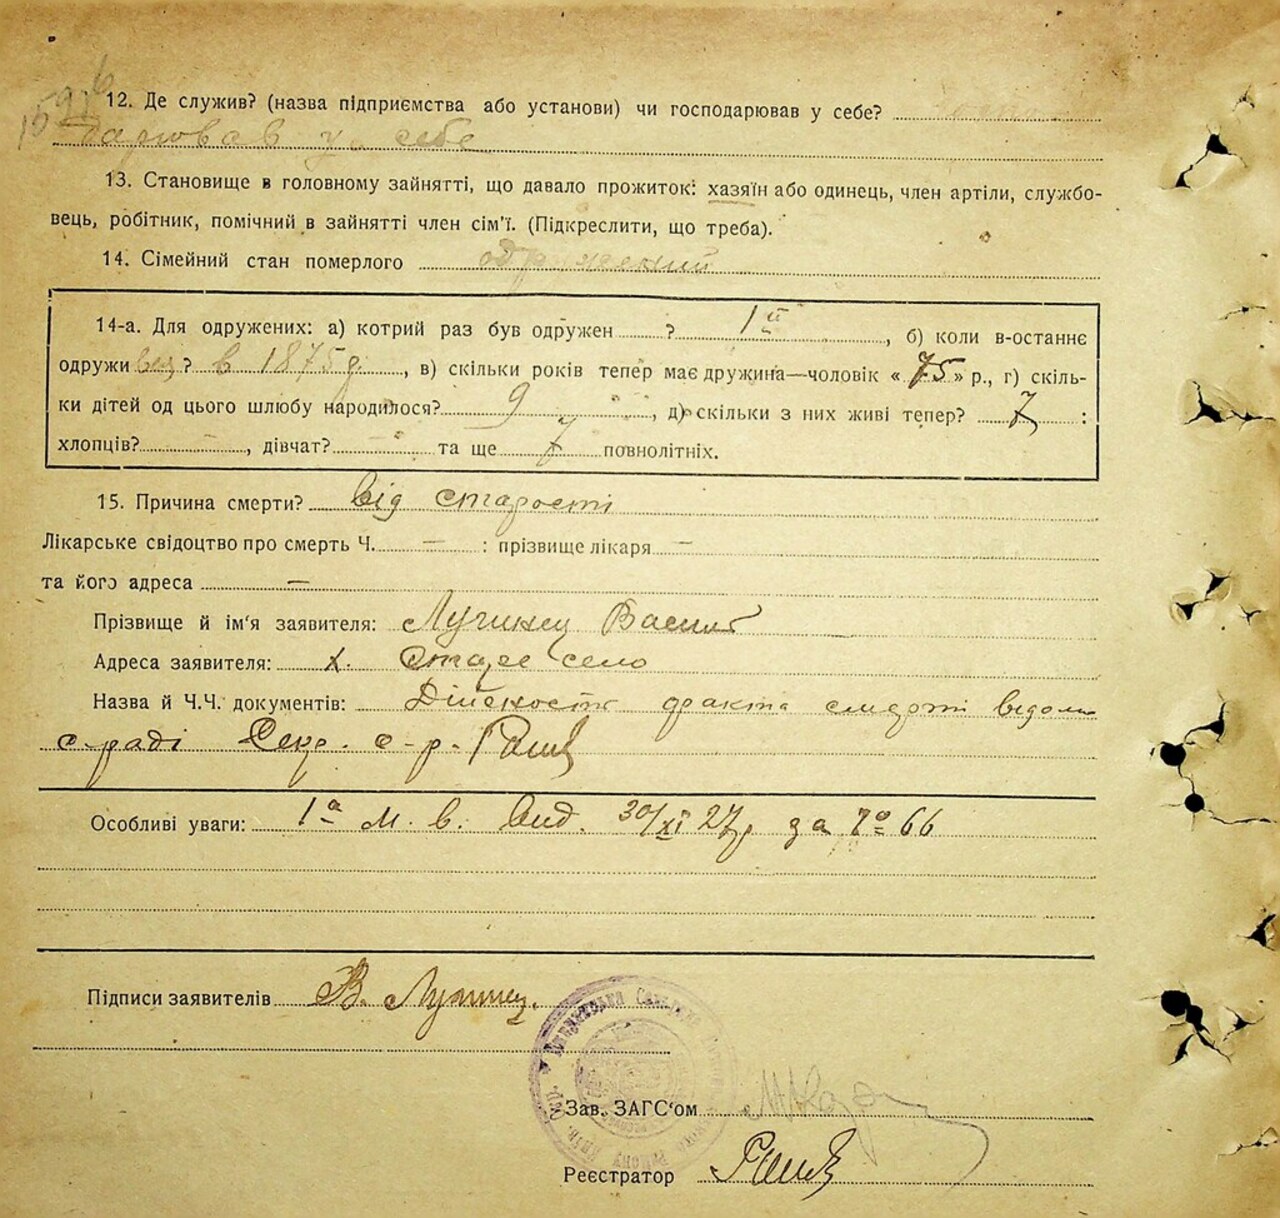 12. Де служив? (назва підприємства або установи) чи господарював у себе?
дарював у себе
13. Становище в головному зайнятті, що давало прожиток: хазяїн або одинець, член артіли, службо-
вець, робітник, помічний в зайнятті член сім'ї. (Підкреслити, що треба).
14. Сімейний стан померлого одружений
14-а. Для одружених: а) котрий раз був одружен ? 1й, б) коли в-останнє
одружи вся? в 1875 р., в) скільки років тепер має дружина—чоловік «75» р., г) скіль-
ки дітей од цього шлюбу народилося? 9, д) скільки з них живі тепер? 7 :
хлопців? —, дівчат? — та ще 7 повнолітніх.
15. Причина смерти? від старости
Лікарське свідоцтво про смерть Ч. — : прізвище лікаря —
та його адреса —
Прізвище й ім'я заявителя: Лучинец Василь
Адреса заявителя: х. Старе село
Назва й Ч.Ч. документів: Дійсность факта смерті відома
с-раді Секр. с-р.
Особливі уваги: 1а м. в. вид. 30/XI 27 р за № 66
Підписи заявителів В. Лучинец.
Зав. ЗАГС'ом
Реєстратор